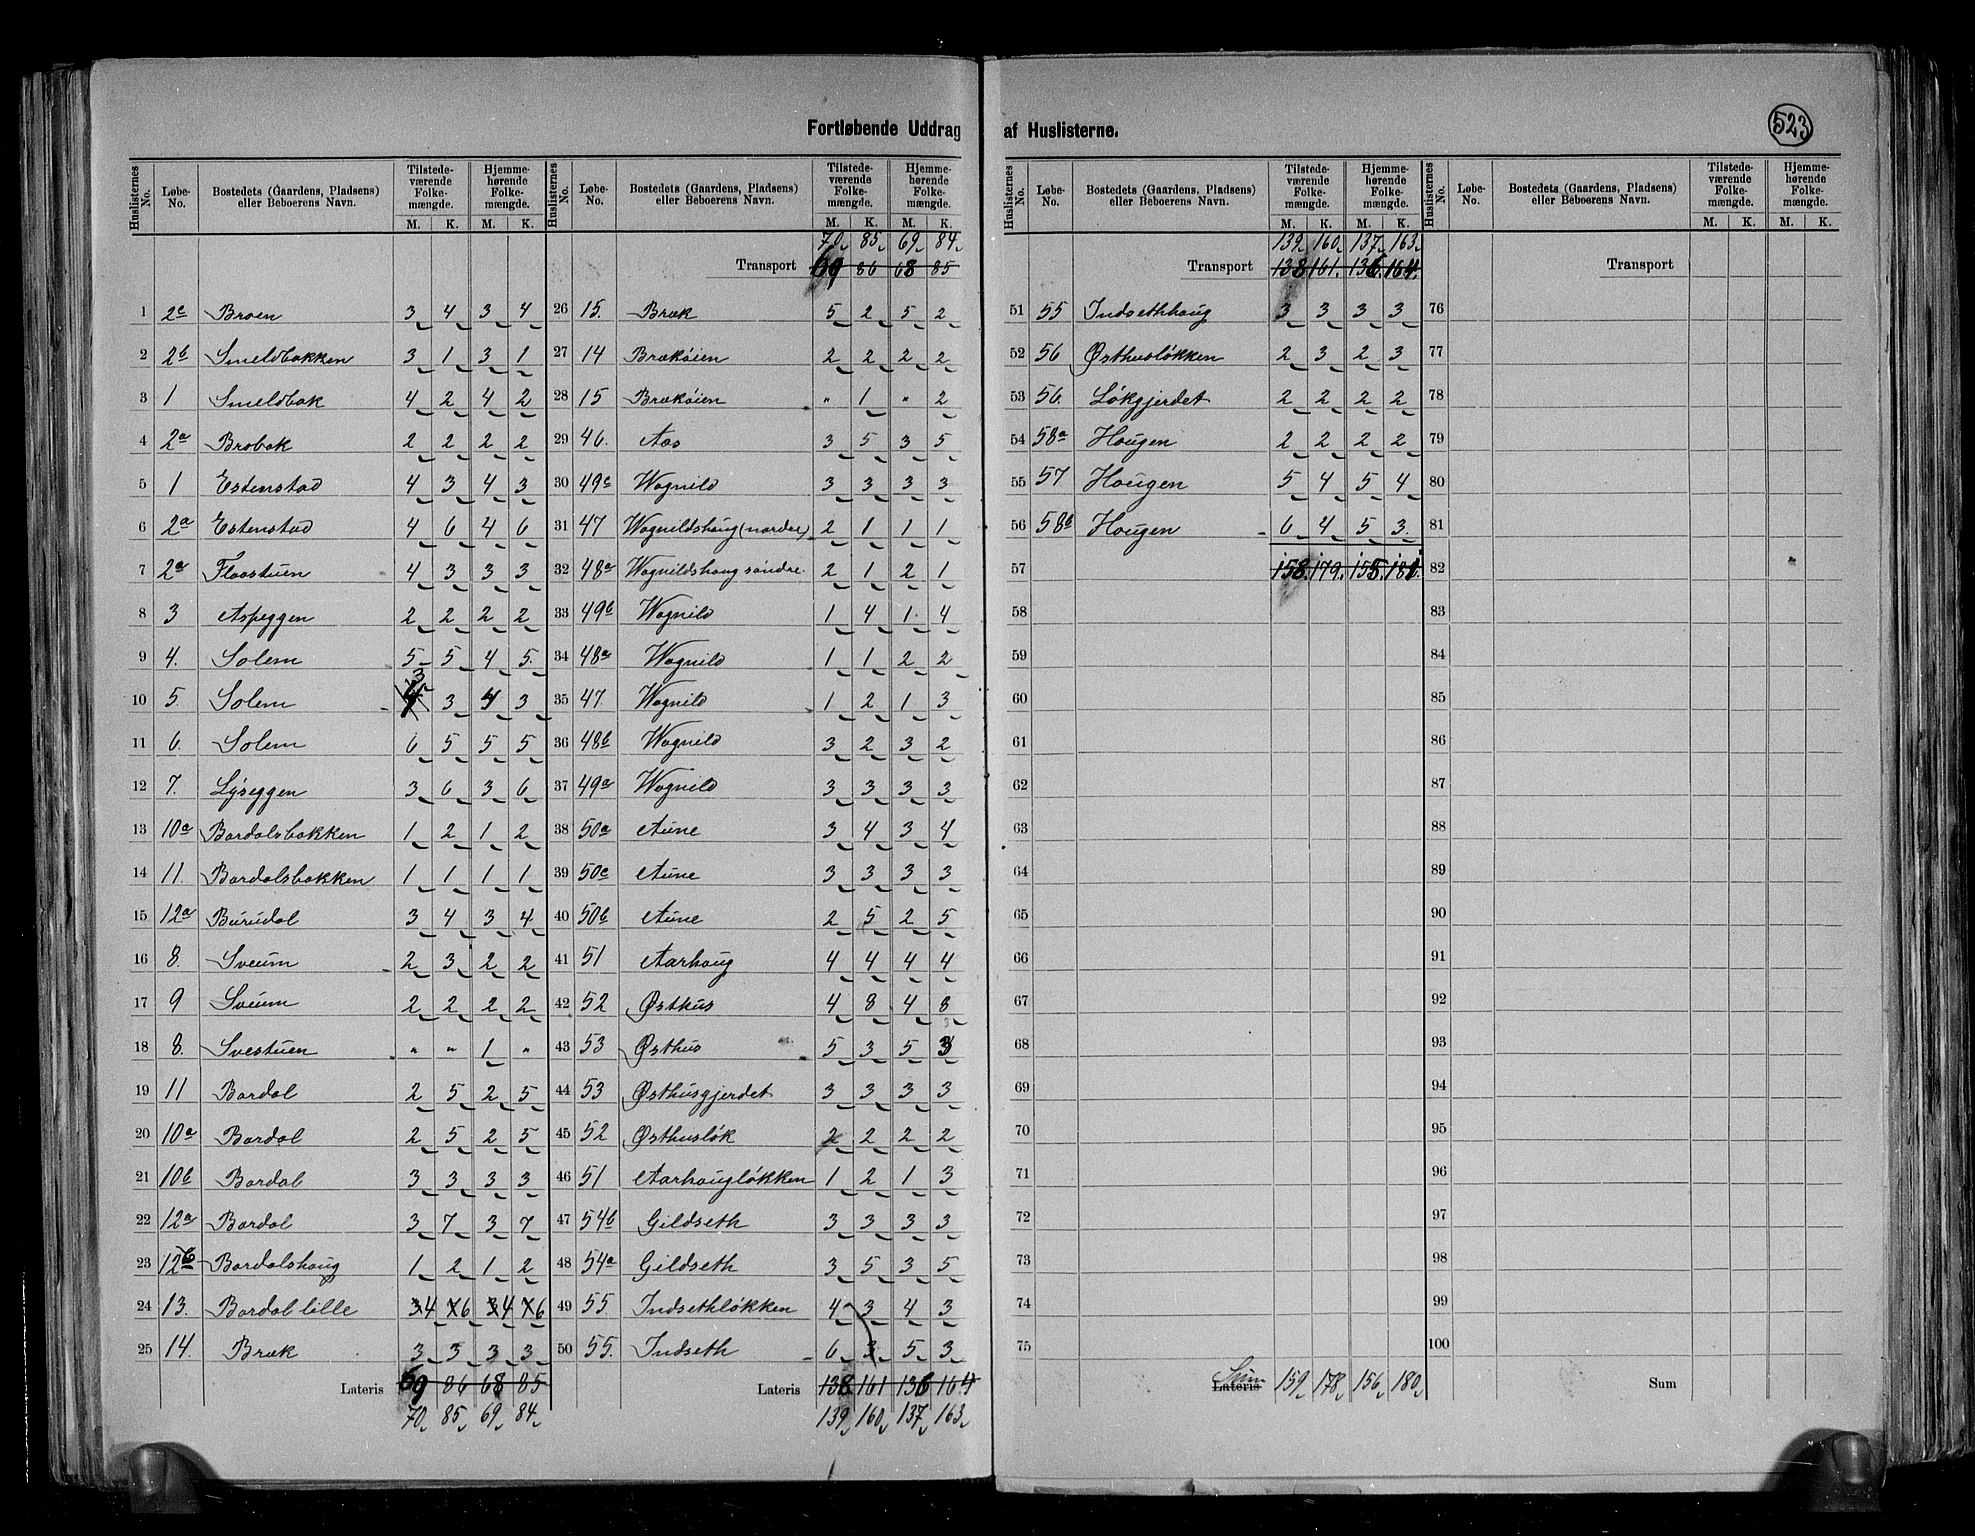 Fortløbende Uddrag af Huslisterne.
523
Huslisternes No. | Løbe-No. | Bostedets (Gaardens, Pladsens) eller Beboerens Navn. | Tilstedeværende Folkemængde. M. K. | Hjemmehørende Folkemængde. M. K.
1 2c Broen 3 4 3 4
2 2b Smeldbakken 3 1 3 1
3 1 Smeldbak 4 2 4 2
4 2a Brobak 2 2 2 2
5 1 Estenstad 4 3 4 3
6 2a Estenstad 4 6 4 6
7 2a Floostuen 4 3 3 3
8 3 Aspeggen 2 2 2 2
9 4. Solem 5 5 4 5
10 5. Solem 3 3 4 3
11 6. Solem 6 5 5 5
12 7. Lyseggen 3 6 3 6
13 10a Bardalsbakken 1 2 1 2
14 11. Bardalsbakken 1 1 1 1
15 12a Burudal 3 4 3 4
16 8. Sveum 2 3 2 2
17 9 Sveum 2 2 2 2
18 8. Svestuen " " 1 "
19 11 Bardal 2 5 2 5
20 10a Bardal 2 5 2 5
21 10b Bardal 3 3 3 3
22 12a Bardal 3 7 3 7
23 12b Bardalshaug 1 2 1 2
24 13. Bardal lille 4 6 4 6
25 14. Bræk 3 3 3 3
Lateris 69 86 68 85
70 85 69 84
Huslisternes No. | Løbe-No. | Bostedets (Gaardens, Pladsens) eller Beboerens Navn. | Tilstedeværende Folkemængde. M. K. | Hjemmehørende Folkemængde. M. K.
70 85 69 84
Transport 69 86 68 85
26 15. Bræk 5 2 5 2
27 14 Brækøien 2 2 2 2
28 15 Brækøien " 1 " 2
29 46. Aas 3 5 3 5
30 49c Wognild 3 3 3 3
31 47 Wognildshaug (nordre) 2 1 1 1
32 48a Wognildshaug søndre. 2 1 2 1
33 49b Wognild 1 4 1 4
34 48a Wognild 1 1 2 2
35 47. Wognild 1 2 1 3
36 48b Wognild 3 2 3 2
37 49a Wognild 3 3 3 3
38 50a Aune 3 4 3 4
39 50c Aune 3 3 3 3
40 50b Aune 2 5 2 5
41 51 Aarhaug 4 4 4 4
42 52 Østhus 4 8 4 8
43 53 Østhus 5 3 5 3
44 53 Østhusgjerdet 3 3 3 3
45 52 Østhusløk 2 2 2 2
46 51 Aarhaugløkken 1 2 1 3
47 54b Gildseth 3 3 3 3
48 54a Gildseth 3 5 3 5
49 55. Indsethløkken 4 3 4 3
50 55. Indseth 6 3 5 3
Lateris 138 161 136 164
139 160 137 163
Huslisternes No. | Løbe-No. | Bostedets (Gaardens, Pladsens) eller Beboerens Navn. | Tilstedeværende Folkemængde. M. K. | Hjemmehørende Folkemængde. M. K.
139 160 137 163
Transport 138 161. 136. 164.
51 55 Indsethhaug 3 3 3 3
52 56 Østhusløkken 2 3 2 3
53 56. Løkgjerdet 2 2 2 2
54 58a Haugen 2 2 2 2
55 57 Haugen 5 4 5 4
56 58b Haugen 6 4 5 3
57 158. 179. 155. 181.
58
59
60
61
62
63
64
65
66
67
68
69
70
71
72
73
74
75
Lateris Sum 159 178 156 180
Huslisternes No. | Løbe-No. | Bostedets (Gaardens, Pladsens) eller Beboerens Navn. | Tilstedeværende Folkemængde. M. K. | Hjemmehørende Folkemængde. M. K.
Transport
76
77
78
79
80
81
82
83
84
85
86
87
88
89
90
91
92
93
94
95
96
97
98
99
100
Sum